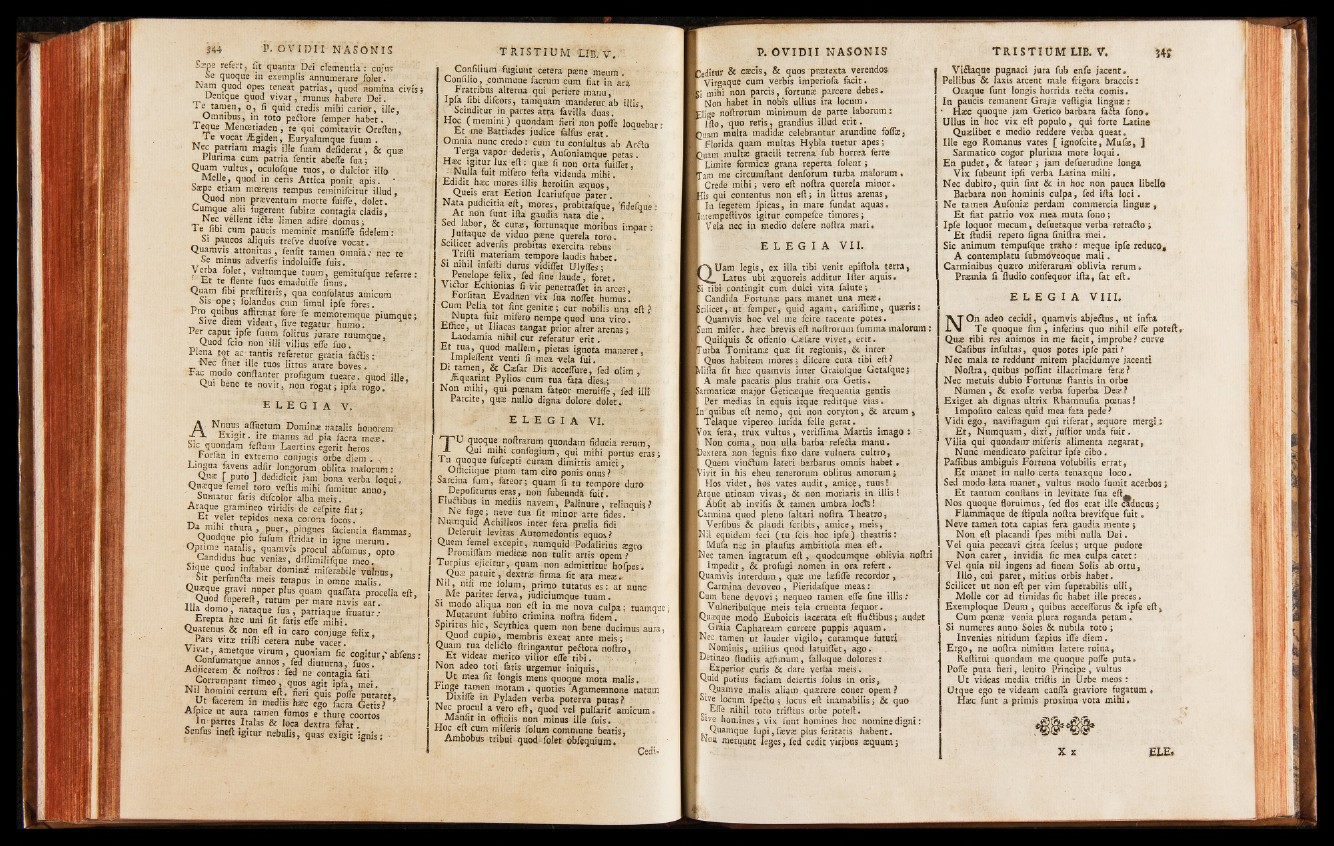 344 P. OVIDII NASONIS
Sæpe refert, ſit quanta Dei clementia: cujus
Se quoque in exemplis annumerare ſolet.
Nam quod opes teneat patrias, quod nomina civis;
Denique quod vivat, munus habere Dei.
Te tamen, o, ſi quid credis mihi carior, ille,
Omnibus, in toto pectore ſemper habet.
Teque Menœtiaden, te qui comitavit Oreſten,
Te vocat Ægiden, Euryalumque ſuum.
Nec patriam magis ille ſuam deſiderat, & quæ
Plurima cum patria ſentit abeſſe ſua;
Quam vultus, oculoſque tuos, o dulcior illo
Melle, quod in ceris Attica ponit apis.
Sæpe etiam mœrens tempus reminiſcitur illud,
Quod non præventum morte fuiſſe, dolet.
Cumque alii fugerent ſubitæ contagia cladis,
Nec vellent ictæ limen adire domus;
Te ſibi cum paucis meminit manſiſſe fidelem:
Si paucos aliquis treſve duoſve vocat.
Quamvis attonitus, ſenſit tamen omnia: nec te
Se minus adverſis indoluiſſe ſuis.
Verba ſolet, vultumque tuum, gemituſque referre:
Et te flente ſuos emaduiſſe ſinus.
Quam ſibi præſtiteris, qua conſolatus amicum
Sis ope; ſolandus cum ſimul ipſe fores.
Pro quibus affirmat fore ſe memoremque piumque;
Sive diem videat, ſive tegatur humo.
Per caput ipſe ſuum ſolitus jurare tuumque,
Quod ſcio non illi vilius eſſe ſuo.
Plena tot ac tantis referetur gratia factis:
Nec ſinet ille tuos littus arare boves.
Fac modo conſtanter profugum tueare. quod ille,
Qui bene te novit, non rogat; ipſa rogo.
ELEGIA V.
ANnuus aſſuetum Dominæ natalis honorem
Exigit. ite manus ad pia ſacra meæ.
Sic quondam feſtum Laertius egerit heros
Forſan in extremo conjugis orbe diem.
Lingua favens adſit longorum oblita malorum:
Quæ [ puto ] dedidicit jam bona verba loqui.
Quæque ſemel toto veſtis mihi ſumitur anno,
Sumatur fatis diſcolor alba meis.
Araque gramineo viridis de ceſpite fiat;
Et velet tepidos nexa corona focos.
Da mihi thura, puer, pingues facientia flammas,
Quodque pio fuſum ſtridat in igne merum.
Optime natalis, quamvis procul abſumus, opto
Candidus huc venias, diſſimiliſque meo.
Sique quod inſtabat dominæ miſerabile vulnus,
Sit perfuncta meis tempus in omne malis.
Quæque gravi nuper plus quam quaſſata procella eſt,
Quod ſupereſt, tutum per mare navis eat.
Illa domo, nataque ſua, patriaque fruatur:
Erepta hæc uni ſit ſatis eſſe mihi.
Quatenus & non eſt in caro conjuge felix,
Pars vitæ triſti cetera nube vacet.
Vivat, ametque virum, quoniam ſic cogitur, abſens:
Conſumatque annos, ſed diuturna, ſuos.
Adjicerem & noſtros: ſed ne contagia fati
Corrumpant timeo, quos agit ipſa, mei.
Nil homini certum eſt. fieri quis poſſe putaret,
Ut facerem in mediis hæc ego ſacra Getis?
Aſpice ut aura tamen fumos e thure coortos
In partes Italas & loca dextra ferat.
Senſus ineſt igitur nebulis, quas exigit ignis:
TRISTIUM LIB. V.
Conſilium fugiunt cetera pæne meum.
Conſilio, commune ſacrum cum fiat in ara
Fratribus alterna qui periere manu,
Ipſa ſibi diſcors, tamquam mandetur ab illis,
Scinditur in partes atra favilla duas.
Hoc (memini) quondam fieri non poſſe loquebar:
Et me Battiades judice falſus erat.
Omnia nunc credo: cum tu conſultus ab Arcto
Terga vapor dederis, Auſoniamque petas.
Hæc igitur lux eſt: quæ ſi non orta fuiſſet,
Nulla fuit miſero feſta videnda mihi.
Edidit hæc mores illis heroiſin æquos,
Queis erat Eetion Icariuſque pater.
Nata pudicitia eſt, mores, probitaſque, fideſque:
At non ſunt iſta gaudia nata die.
Sed labor, & curæ, fortunaque moribus impar:
Juſtaque de viduo pæne querela toro.
Scilicet adverſis probitas exercita rebus
Triſti materiam tempore laudis habet.
Si nihil infeſti durus vidiſſet Ulyſſes;
Penelope felix, ſed ſine laude, foret.
Victor Echionias ſi vir penetraſſet in arces,
Forſitan Evadnen vix ſua noſſet humus.
Cum Pelia tot ſint genitæ; cur nobilis una eſt?
Nupta fuit miſero nempe quod una viro.
Effice, ut Iliacas tangat prior alter arenas;
Laodamia nihil cur referatur erit.
Et tua, quod mallem, pietas ignota maneret,
Impleſſent venti ſi mea vela ſui.
Di tamen, & Cæſar Dis acceſſure, ſed olim,
Æquarint Pylios cum tua fata dies;
Non mihi, qui pœnam fateor meruiſſe, ſed illi
Parcite, quæ nullo digna dolore dolet.
ELEGIA VI.
TU quoque noſtrarum quondam fiducia rerum,
Qui mihi confugium, qui mihi portus eras;
Tu quoque ſuſcepti curam dimittis amici,
Officiique pium tam cito ponis onus?
Sarcina ſum, fateor; quam ſi tu tempore duro
Depoſiturus eras, non ſubeunda fuit.
Fluctibus in mediis navem, Palinure, relinquis?
Ne fuge; neve tua ſit minor arte fides.
Numquid Achilleos inter fera prælia fidi
Deſeruit levitas Automedontis equos?
Quem ſemel excepit, numquid Podalirius ægro
Promiſſam medicæ non tulit artis opem?
Turpius ejicitur, quam non admittitur hoſpes.
Quæ patuit, dextræ firma ſit ara meæ.
Nil, niſi me ſolum, primo tutatus es: at nunc
Me pariter ſerva, judiciumque tuum.
Si modo aliqua non eſt in me nova culpa; tuamque
Mutarunt ſubito crimina noſtra fidem.
Spiritus hic, Scythica quem non bene ducimus aura,
Quod cupio, membris exeat ante meis;
Quam tua delicto ſtringantur pectora noſtro,
Et videar merito vilior eſſe tibi.
Non adeo toti fatis urgemur iniquis,
Ut mea ſit longis mens quoque mota malis.
Finge tamen motam. quoties Agamemnone natum
Dixiſſe in Pyladen verba poterva putas?
Nec procul a vero eſt, quod vel pulſarit amicum.
Manſit in officiis non minus ille ſuis.
Hoc eſt cum miſeris ſolum commune beatis,
Ambobus tribui quod ſolet obſequium.
Cedi-
P. OVIDII NASONIS
Ceditur & cæcis, & quos prætexta verendos
Virgaque cum verbis imperioſa facit.
Si mihi non parcis, fortunæ parcere debes.
Non habet in nobis ullius ira locum.
Elige noſtrorum minimum de parte laborum:
Iſto, quo reris, grandius illud erit.
Quam multa madidæ celebrantur arundine foſſæ,
Florida quam multas Hybla tuetur apes;
Quam multæ gracili terrena ſub horrea ferre
Limite formicæ grana reperta ſolent;
Tam me circumſtant denſorum turba malorum.
Crede mihi, vero eſt noſtra querela minor.
His qui contentus non eſt; in littus arenas,
In ſegetem ſpicas, in mare fundat aquas.
Intempeſtivos igitur compeſce timores;
Vela nec in medio deſere noſtra mari.
ELEGIA VII.
QUam legis, ex illa tibi venit epiſtola terra,
Latus ubi æquoreis additur Iſter aquis.
Si tibi contingit cum dulci vita ſalute;
Candida Fortunæ pars manet una meæ.
Scilicet, ut ſemper, quid agam, cariſſime, quæris:
Quamvis hoc vel me ſcire tacente potes.
Sum miſer. hæc brevis eſt noſtrorum ſumma malorum:
Quiſquis & offenſo Cæſare vivet, erit.
Turba Tomitanæ quæ ſit regionis, & inter
Quos habitem mores; diſcere cura tibi eſt?
Miſta ſit hæc quamvis inter Graioſque Getaſque;
A male pacatis plus trahit ora Getis.
Sarmaticæ major Geticæque frequentia gentis
Per medias in equis itque reditque vias.
In quibus eſt nemo, qui non coryton, & arcum,
Telaque vipereo lurida felle gerat.
Vox fera, trux vultus, veriſſima Martis imago:
Non coma, non ulla barba reſecta manu.
Dextera non ſegnis fixo dare vulnera cultro,
Quem vinctum lateri barbarus omnis habet.
Vivit in his eheu tenerorum oblitus amorum;
Hos videt, hos vates audit, amice, tuus!
Atque utinam vivas, & non moriatis in illis!
Abſit ab inviſis & tamen umbra locis!
Carmina quod pleno ſaltari noſtra Theatro,
Verſibus & plaudi ſcribis, amice, meis,
Nil equidem feci (tu ſcis hoc ipſe) theatris:
Muſa nec in plauſus ambitioſa mea eſt.
Nec tamen ingratum eſt, quodcumque oblivia noſtri
Impedit, & profugi nomen in ora refert.
Quamvis interdum, quæ me læſiſſe recordor,
Carmina devoveo, Pieridaſque meas:
Cum bene devovi; nequeo tamen eſſe ſine illis:
Vulneribuſque meis tela cruenta ſequor.
Quæque modo Euboicis lacerata eſt fluctibus; audet
Graia Capharæam currere puppis aquam.
Nec tamen ut lauder vigilo, curamque futuri
Nominis, utilius quod latuiſſet, ago.
Detineo ſtudiis animum, falloque dolores:
Experior curis & dare verba meis.
Quid potius faciam deſertis ſolus in oris,
Quamve malis aliam quærere coner opem?
Sive locum ſpecto; locus eſt inamabilis; & quo
Eſſe nihil toto triſtius orbe poteſt.
Sive homines; vix ſunt homines hoc nomine digni:
Quamque lupi, ſævæ plus feritatis habent.
Non metuunt leges, ſed cedit viribus æquum;
TRISTIUM LIB. V. 345
Victaque pugnaci jura ſub enſe jacent.
Pellibus & laxis arcent male frigora braccis:
Oraque ſunt longis horrida tecta comis.
In paucis remanent Grajæ veſtigia linguæ:
Hæc quoque jam Getico barbara facta ſono.
Ullus in hoc vix eſt populo, qui forte Latine
Quælibet e medio reddere verba queat.
Ille ego Romanus vates [ ignoſcite, Muſæ, ]
Sarmatico cogor plurima more loqui.
En pudet, & fateor; jam deſuetudine longa
Vix ſubeunt ipſi verba Latina mihi.
Nec dubito, quin ſint & in hoc non pauca libello
Barbara non hominis culpa, ſed iſta loci.
Ne tamen Auſoniæ perdam commercia linguæ,
Et fiat patrio vox mea muta ſono;
Ipſe loquor mecum, deſuetaque verba retracto;
Et ſtudii repeto ſigna ſiniſtra mei.
Sic animum tempuſque traho: meque ipſe reduco,
A contemplatu ſubmoveoque mali.
Carminibus quæro miſerarum oblivia rerum.
Præmia ſi ſtudio conſequor iſta, ſat eſt.
ELEGIA VIII.
NOn adeo cecidi, quamvis abjectus, ut infra
Te quoque ſim, inferius quo nihil eſſe poteſt.
Quæ tibi res animos in me facit, improbe? curve
Caſibus inſultas, quos potes ipſe pati?
Nec mala te reddunt mitem placidumve jacenti
Noſtra, quibus poſſint illacrimare feræ?
Nec metuis dubio Fortunæ ſtantis in orbe
Numen, & exoſæ verba ſuperba Deæ?
Exiget ah dignas ultrix Rhamnuſia pœnas!
Impoſito calcas quid mea fata pede?
Vidi ego, navifragum qui riſerat, æquore mergi:
Et, Numquam, dixi, juſtior unda fuit.
Vilia qui quondam miſeris alimenta negarat,
Nunc mendicato paſcitur ipſe cibo.
Paſſibus ambiguis Fortuna volubilis errat,
Et manet in nullo certa tenaxque loco.
Sed modo læta manet, vultus modo ſumit acerbos;
Et tantum conſtans in levitate ſua eſt.
Nos quoque floruimus, ſed flos erat ille caducus;
Flammaque de ſtipula noſtra breviſque fuit.
Neve tamen tota capias fera gaudia mente;
Non eſt placandi ſpes mihi nulla Dei.
Vel quia peccavi citra ſcelus; utque pudore
Non caret, invidia ſic mea culpa caret:
Vel quia nil ingens ad finem Solis ab ortu,
Illo, cui paret, mitius orbis habet.
Scilicet ut non eſt per vim ſuperabilis ulli,
Molle cor ad timidas ſic habet ille preces.
Exemploque Deum, quibus acceſſurus & ipſe eſt,
Cum pœnæ venia plura roganda petam.
Si numeres anno Soles & nubila toto;
Invenies nitidum ſæpius iſſe diem.
Ergo, ne noſtra nimium lætere ruina,
Reſtitui quondam me quoque poſſe puta.
Poſſe puta fieri, lenito Principe, vultus
Ut videas media triſtis in Urbe meos:
Utque ego te videam cauſſa graviore fugatum.
Hæc ſunt a primis proxima vota mihi.
X x ELE-